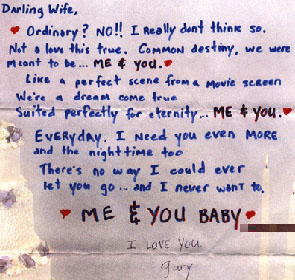 Darling Wife,
♥ Ordinary? NO!! I really dont think so.
Not a love this true. Common destiny, we were
meant to be... ME & YOU.♥
Like a perfect scene from a movie screen
We're a dream come true
Suited perfectly for eternity... ME & YOU.♥
EVERYDAY, I need you even MORE
and the nighttime too
There's no way I could ever
let you go... and I never want to.
♥ ME & YOU BABY ♥
I LOVE YOU
Gary